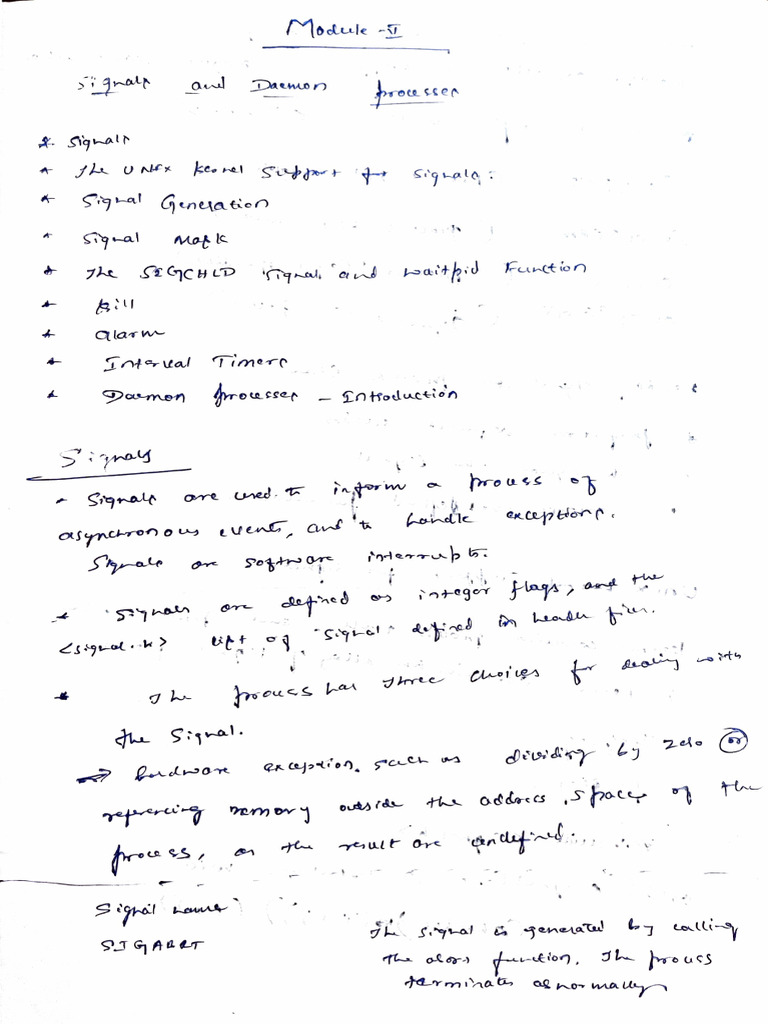 Module - V
Signals and Daemon processes
* Signals
* The UNIX kernel Support for Signals:
* Signal Generation
* Signal Mask
* The SIGCHLD Signals and waitpid Function
* kill
* alarm
* Interval Timers
* Daemon processes - Introduction
Signals
* Signals are used to inform a process of
asynchronous events, and to handle exceptions.
Signals are software interrupts.
* Signals are defined as integer flags, and the
<signal.h> list of signal defined in header files.
* The process has three choices for dealing with
the Signal.
→ hardware exception, such as dividing by zero or
referencing memory outside the address space of the
process, or the result are undefined.
Signal name
SIGABRT
The signal is generated by calling
the abort function. The process
terminates abnormally